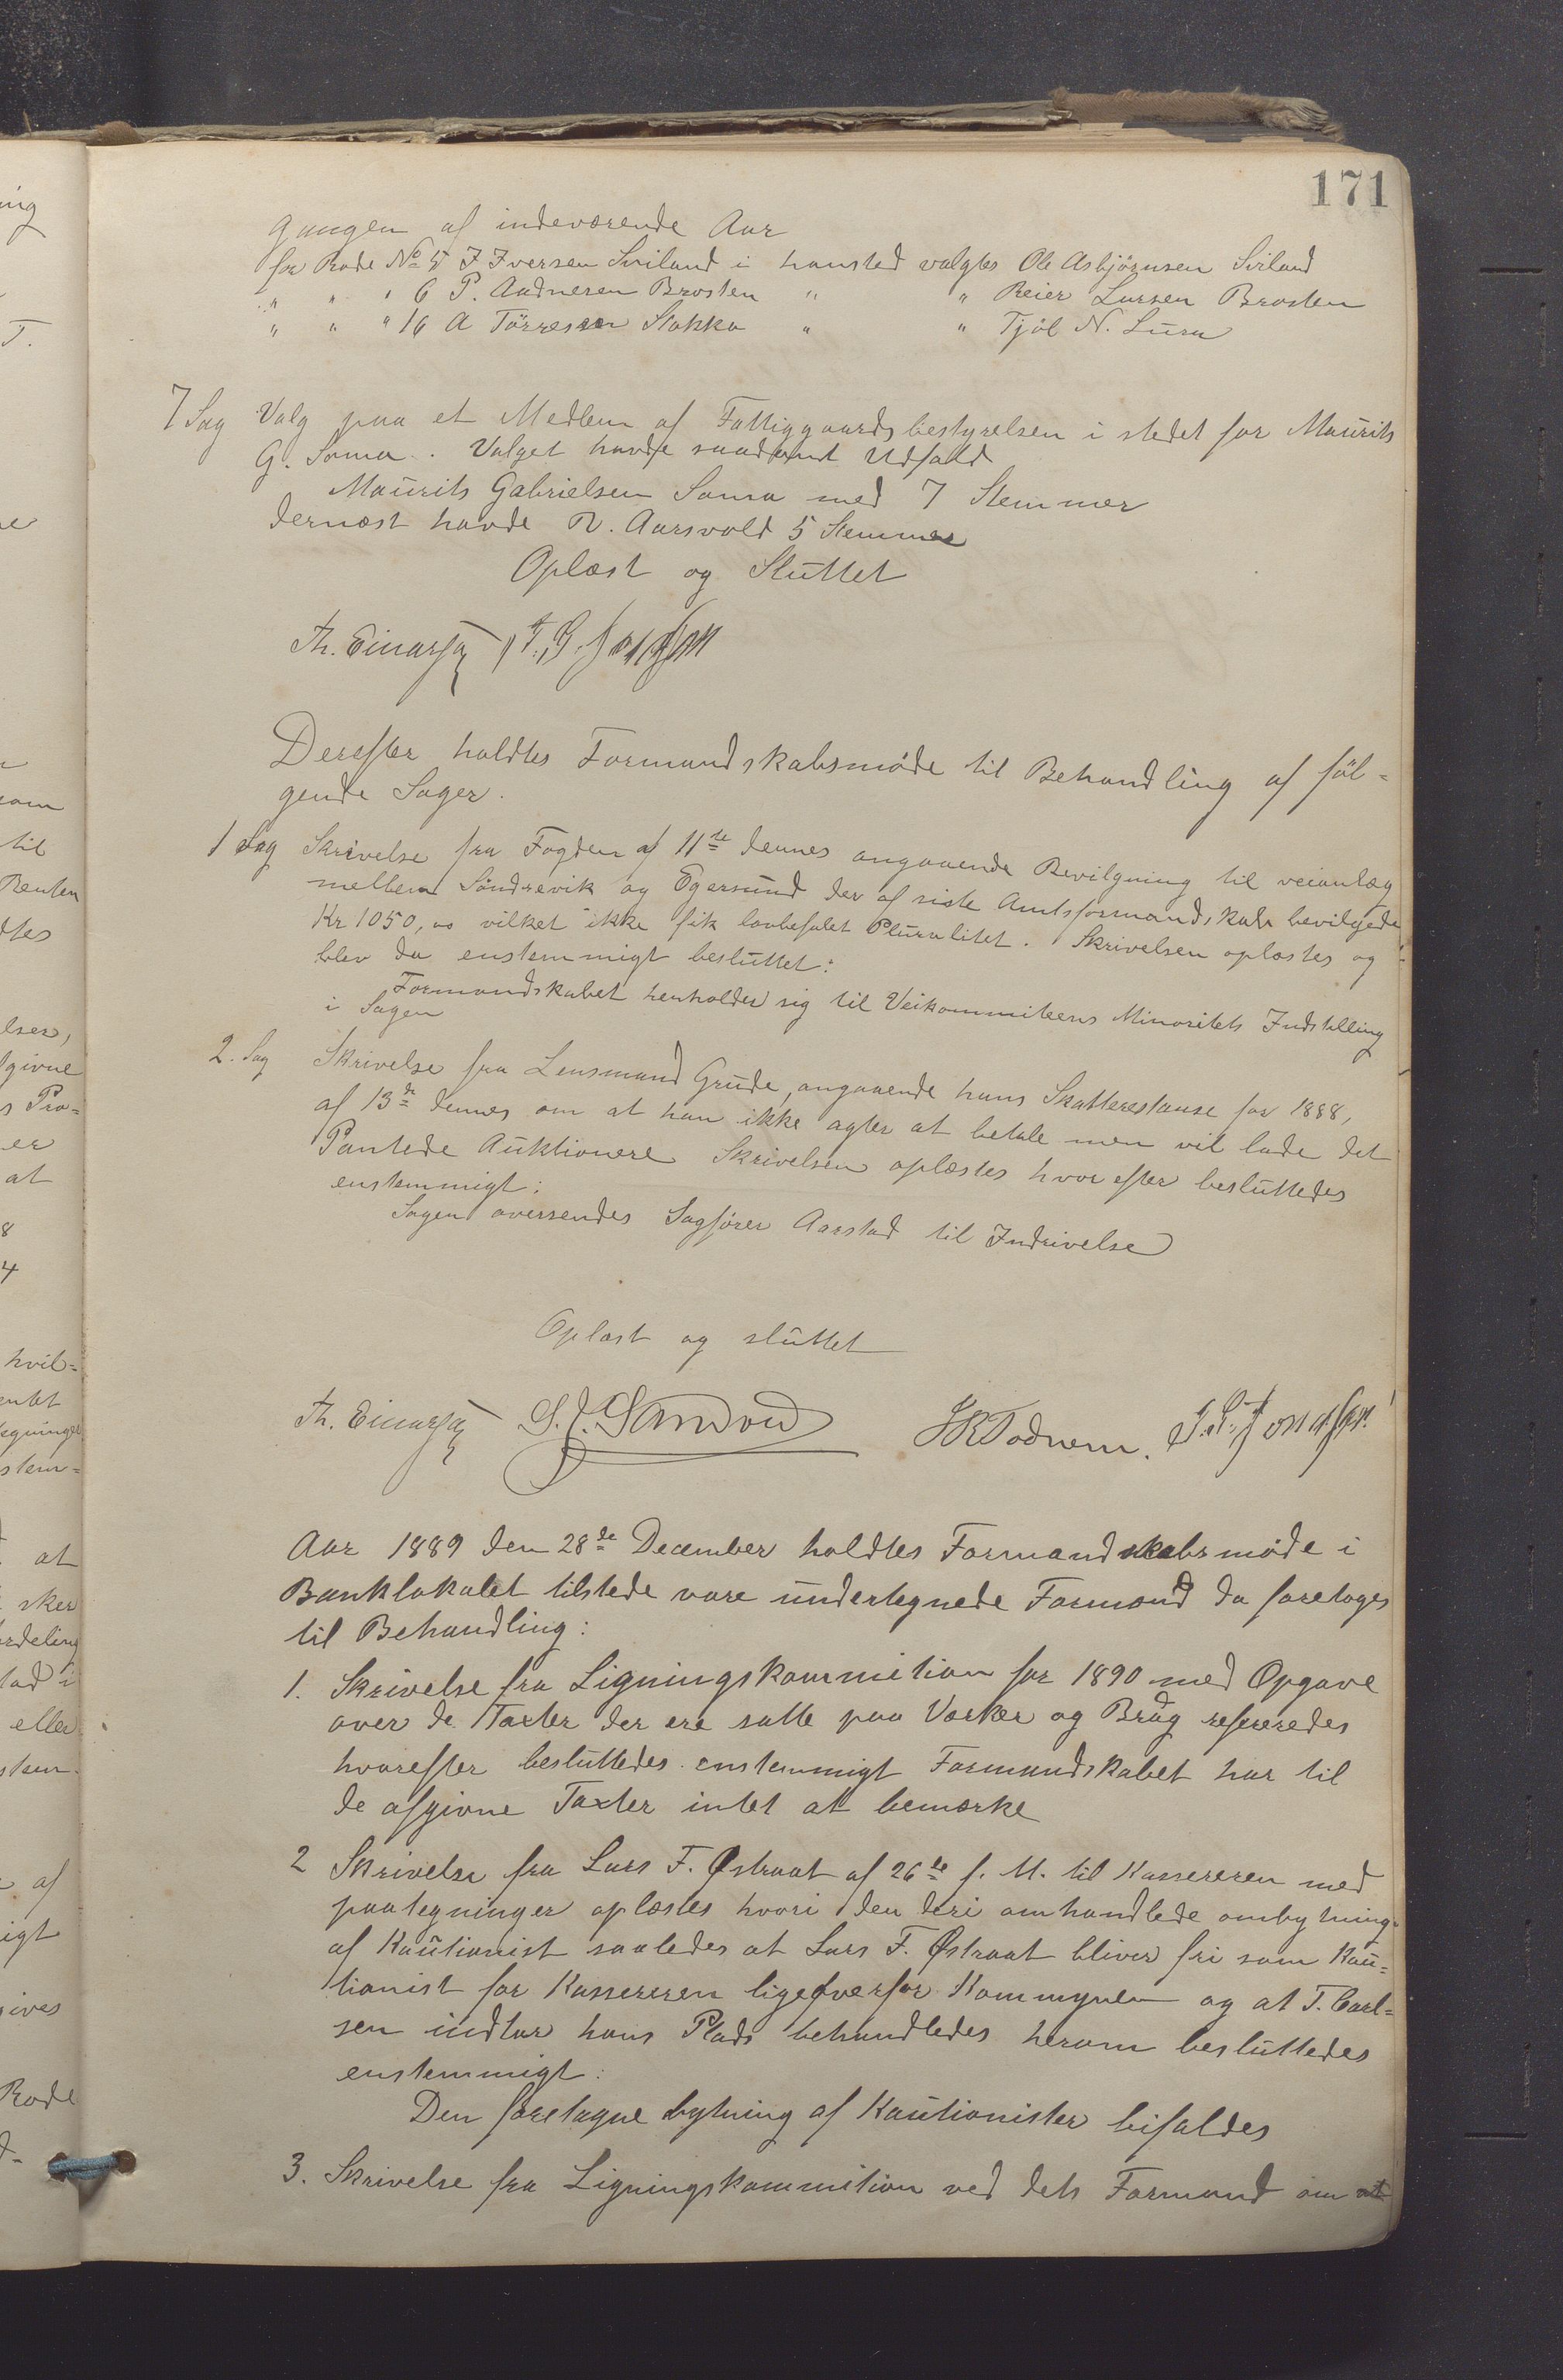 171
gangen af indeværende Aar
for Rode No 5 I Iversen Sviland i hansted valgtes Ole Asbjörnsen Sviland
" " " 6 P. Aadnesen Brosten " " Reier Larsen Brosten
" " " 16 A Törressen Stokka " " Tjöl N. Lura
7 Sag Valg paa et Medlem af Fattiggaardsbestyrelsen i stedet for Maurits
G. Soma. Valget havde saadant Udfald
Maurits Gabrielsen Soma med 7 Stemmer
dernæst havde R. Aarsvold 5 Stemmer
Oplæst og Sluttet
Th. Einarsen T. G. Jonassen
Derefter holdtes Formandskabsmöde til Behandling af föl-
gende Sager.
1 Sag Skrivelse fra Fogden af 11te dennes angaaende Bevilgning til veianlæg
mellem Söndrevik og Egersund der af siste Amtsformandskab bevilgede
Kr 1050,00 vilket ikke fik lovbefalet Pluralitet. Skrivelsen oplæstes og
blev da enstemmigt besluttet:
Formandskabet henholder sig til Veikommiteens Minoritets Indstilling
i Sagen
2. Sag Skrivelse fra Lensmand Grude, angaaende hans Skatterestanse for 1888,
af 13de dennes om at han ikke agter at betale men vil lade det
Pantede Auktionere Skrivelsen oplæstes hvorefter besluttedes
enstemmigt:
Sagen oversendes Sagförer Aarstad til Indrivelse
Oplæst og sluttet
Th. Einarsen S. J. Sandvid J R Todnem. T. G. Jonassen.
Aar 1889 den 28de December holdtes Formandskabsmöde i
Banklokalet tilstede vare undertegnede Formænd da foretoges
til Behandling:
1. Skrivelse fra Ligningskommition for 1890 med Opgave
over de Taxter der ere satte paa Værker og Brug refereredes
hvorefter besluttedes enstemmigt Formandskabet har til
de afgivne Taxter intet at bemærke
2 Skrivelse fra Lars F. Østraat af 26de f. M. til Kassereren med
paategninger oplæstes hvori den deri omhandlede ombytning
af Kautionist saaledes at Lars F. Østraat bliver fri som Kau-
tionist for Kassereren ligeoverfor Kommunen og at T. Carl-
sen indtar hans Plads behandledes herom besluttedes
enstemmigt:
Den foretagne bytning af Kautionister bifaldes
3. Skrivelse fra Ligningskommition ved dets Formand om at